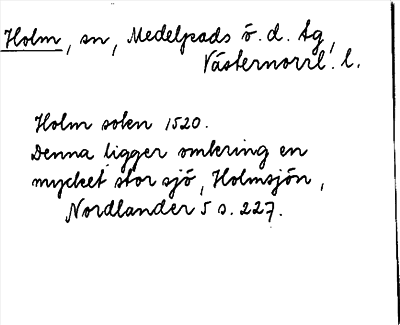 Holm, sn, Medelpads ö. d. tg,
Västernorrl. l.
Holm soken 1520.
Denna ligger omkring en
mycket stor sjö, Holmsjön,
Nordlander 5 s. 227.